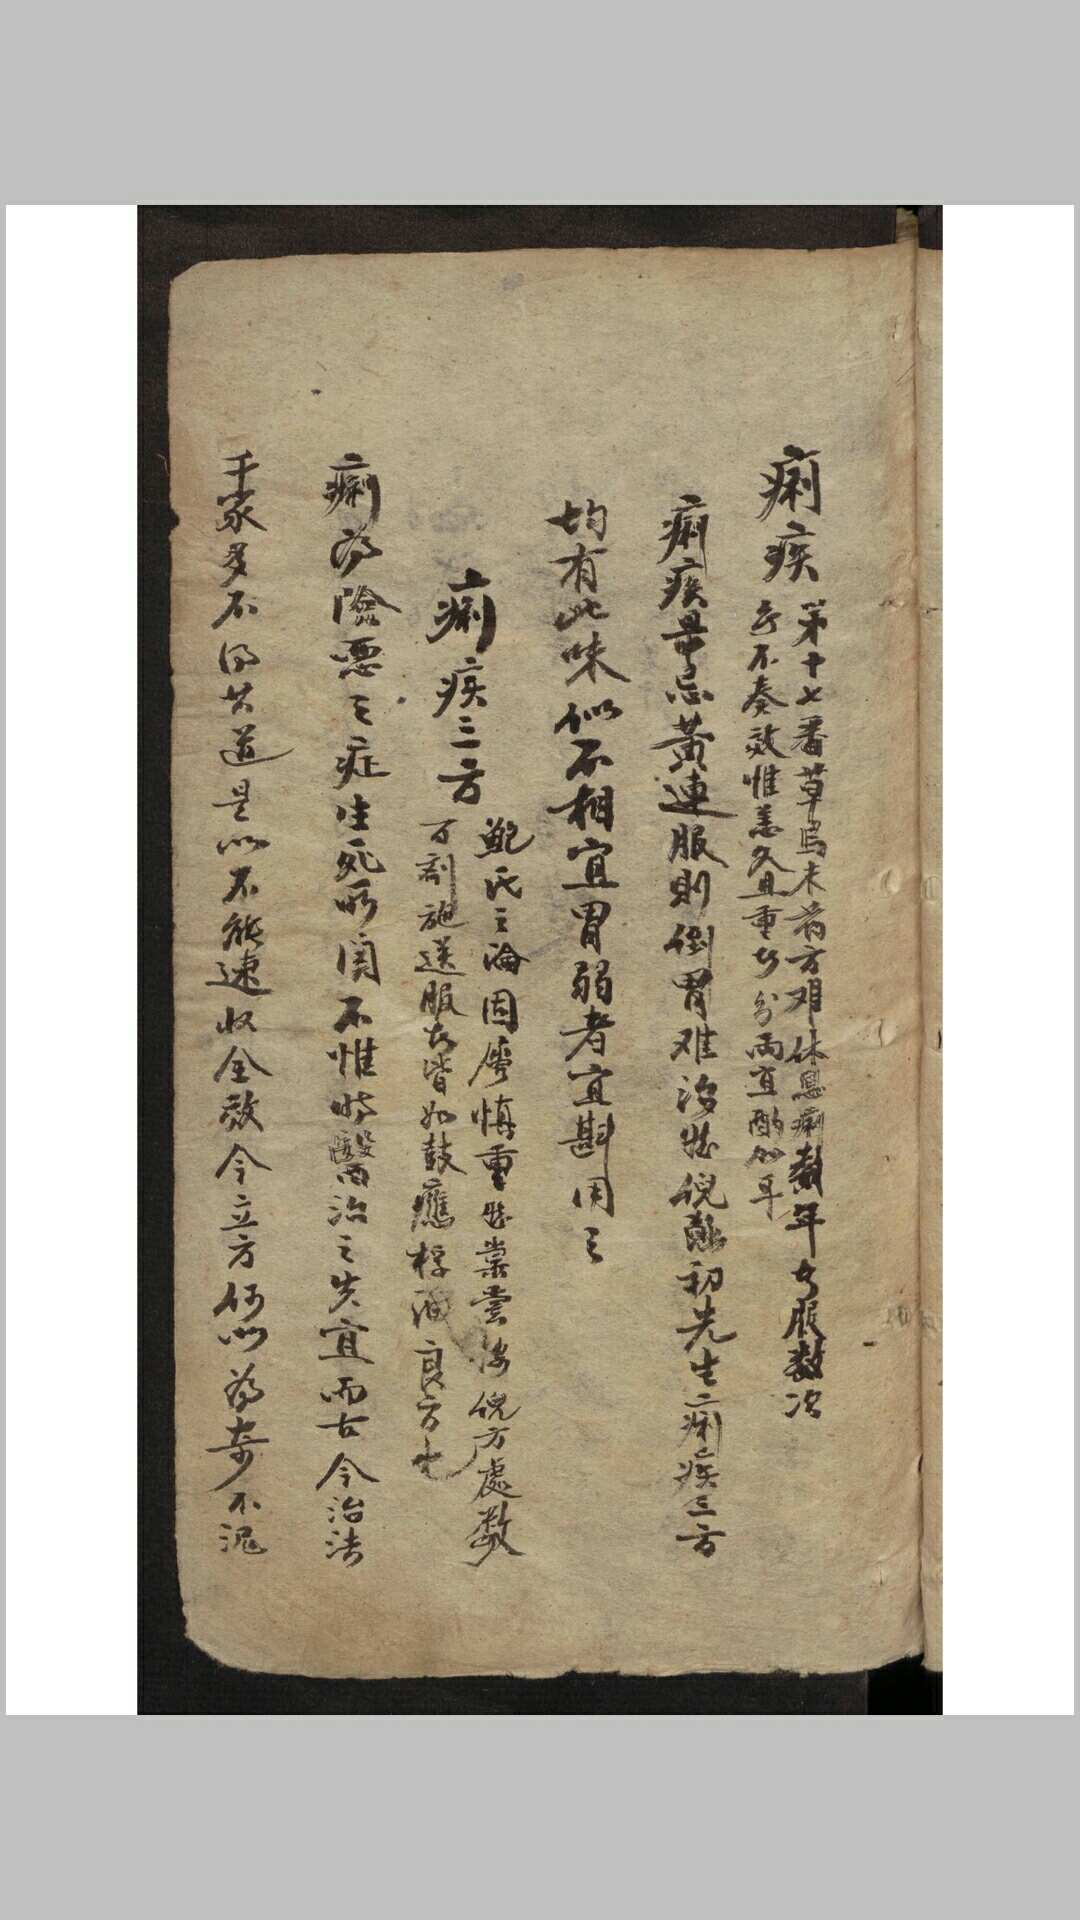 痢疾
第十七番草烏末前方难休息痢數年者服數次
無不奏效惟恙久且重者分兩宜酌加耳
痢疾最忌黃連服則倒胃难治然倪涵初先生痢疾三方
均有此味似不相宜胃弱者宜斟用之
痢疾三方
鮑氏之論固屬慎重然棠雲按倪方處數
百劑施送服者皆如鼓應桴洵良方也
痢為險惡之症生死所関不惟時醫治之失宜而古今治法
千家多不得其道是以不能速收全效今立方何以為奇不泥